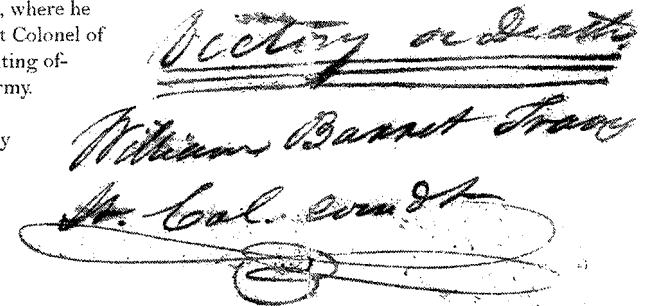 , where he
t Colonel of
ting of-
rmy.
y
Victory or Death
William Barret Travis
Lt. Col. comdt